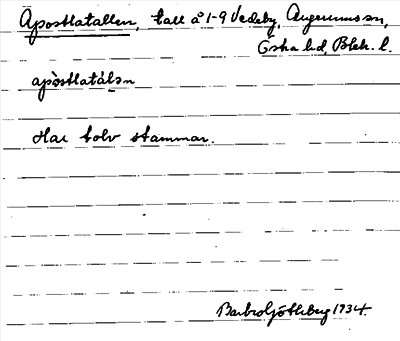 Apostlatallen, tall å 1-9 Vedeby, Augerums sn,
Östra hd, Blek. l.
apòstlatálən
Har tolv stammar.
Barbro Götheberg 1934.